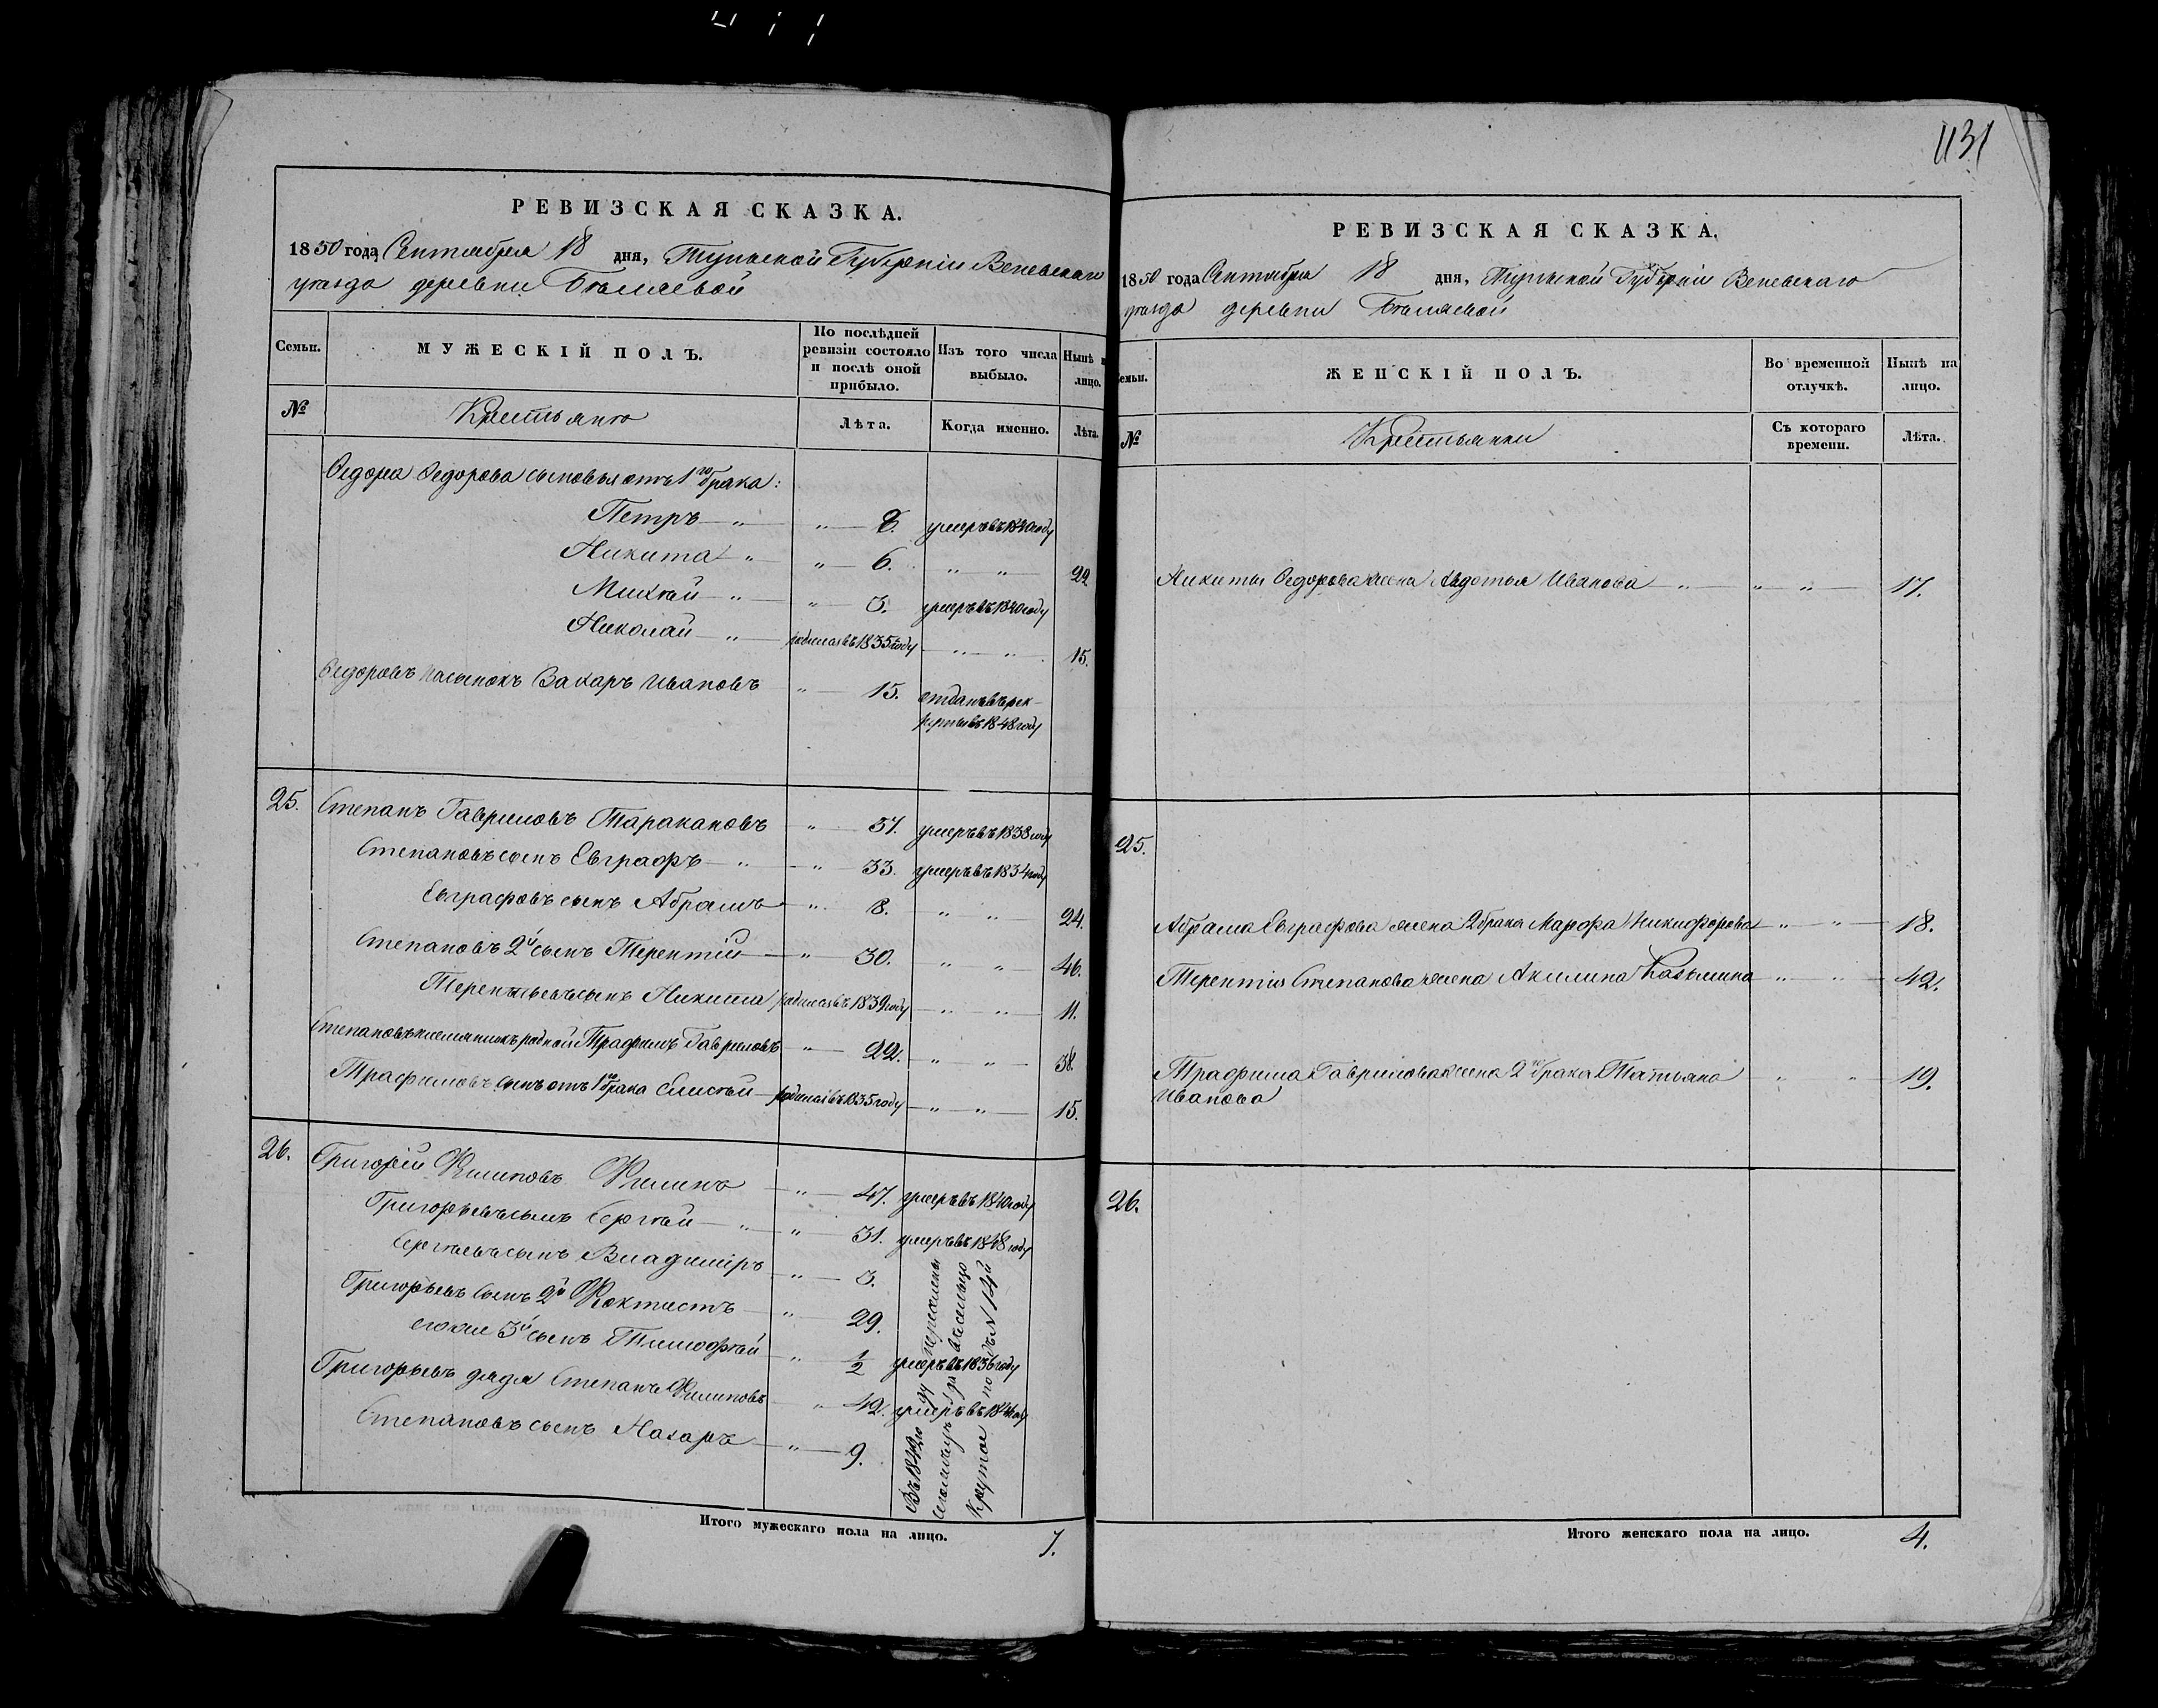 1131
РЕВИЗСКАЯ СКАЗКА.
1850 года Сентября 18 дня, Тульской Губерніи Веневскаго
уѣзда деревни Бѣляевой
Семьи.
МУЖЕСКІЙ ПОЛЪ.
По послѣдней ревизіи состояло и послѣ оной прибыло.
Изъ того числа выбыло.
Нынѣ лицо.
№
Крестьяне
Лѣта.
Когда именно.
Лѣта.
Ѳедора Ѳедорова сыновья отъ 1го брака:
Петръ — „ „ — 8. умеръ въ 1840 году
Никита — „ „ — 6. „ „ — 22
Михѣй — „ „ — 3. умеръ въ 1840 году
Николай — „ родился въ 1835 году „ „ 15.
Ѳедоровъ пасынокъ Захаръ Ивановъ „ — 15. отданъ въ рек-
руты въ 1848 году
25. Степанъ Гавриловъ Таракановъ „ — 57. умеръ въ 1838 году
Степановъ сынъ Евграфъ — „ „ — 33. умеръ въ 1834 году
Евграфовъ сынъ Абрамъ „ 8. „ „ — 24.
Степановъ 2й сынъ Терентій — „ 30. „ „ 46.
Терентьевъ сынъ Никита родился въ 1839 году — „ „ — 11.
Степановъ племянникъ родной Трафимъ Гавриловъ „ — 22. „ „ — 38.
Трафимовъ сынъ отъ 1го брака Елисѣй — родился въ 1835 году — „ — „ — 15.
26. Григорій Филиповъ Филинъ — „ — 47. умеръ въ 1840 году
Григорьевъ сынъ Сергѣй — „ „ 31. умеръ въ 1848 году
Сергѣевъ сынъ Владиміръ — „ — 3.
Григорьевъ сынъ 2й Фоктистъ — „ 29.
его же 3й сынъ Тимофѣй — „ 1/2 умеръ въ 1836 году
Григорьевъ дядя Степанъ Филиповъ „ 42. умеръ въ 1844 году
Степановъ сынъ Назаръ — „ — 9.
Въ 1842 году переселены
въ сельцо
Крутое подъ № 14й
Итого мужескаго пола на лицо. 7.
РЕВИЗСКАЯ СКАЗКА.
1850 года Сентября 18 дня, Тульской Губерніи Веневскаго
уѣзда деревни Бѣляевой
Семьи.
ЖЕНСКІЙ ПОЛЪ.
Во временной отлучкѣ.
Нынѣ на лицо.
№
Крестьянки
Съ котораго времени.
Лѣта.
Никиты Ѳедорова жена Авдотья Иванова — „ — „ „ — 17.
25.
Абрама Евграфова жена 2 брака Марфа Никифорова „ — „ — 18.
Терентія Степанова жена Акилина Козьмина „ „ — 42.
Трафима Гаврилова жена 2го брака Татьяна „ „ — 19.
Иванова
26.
Итого женскаго пола на лицо. 4.